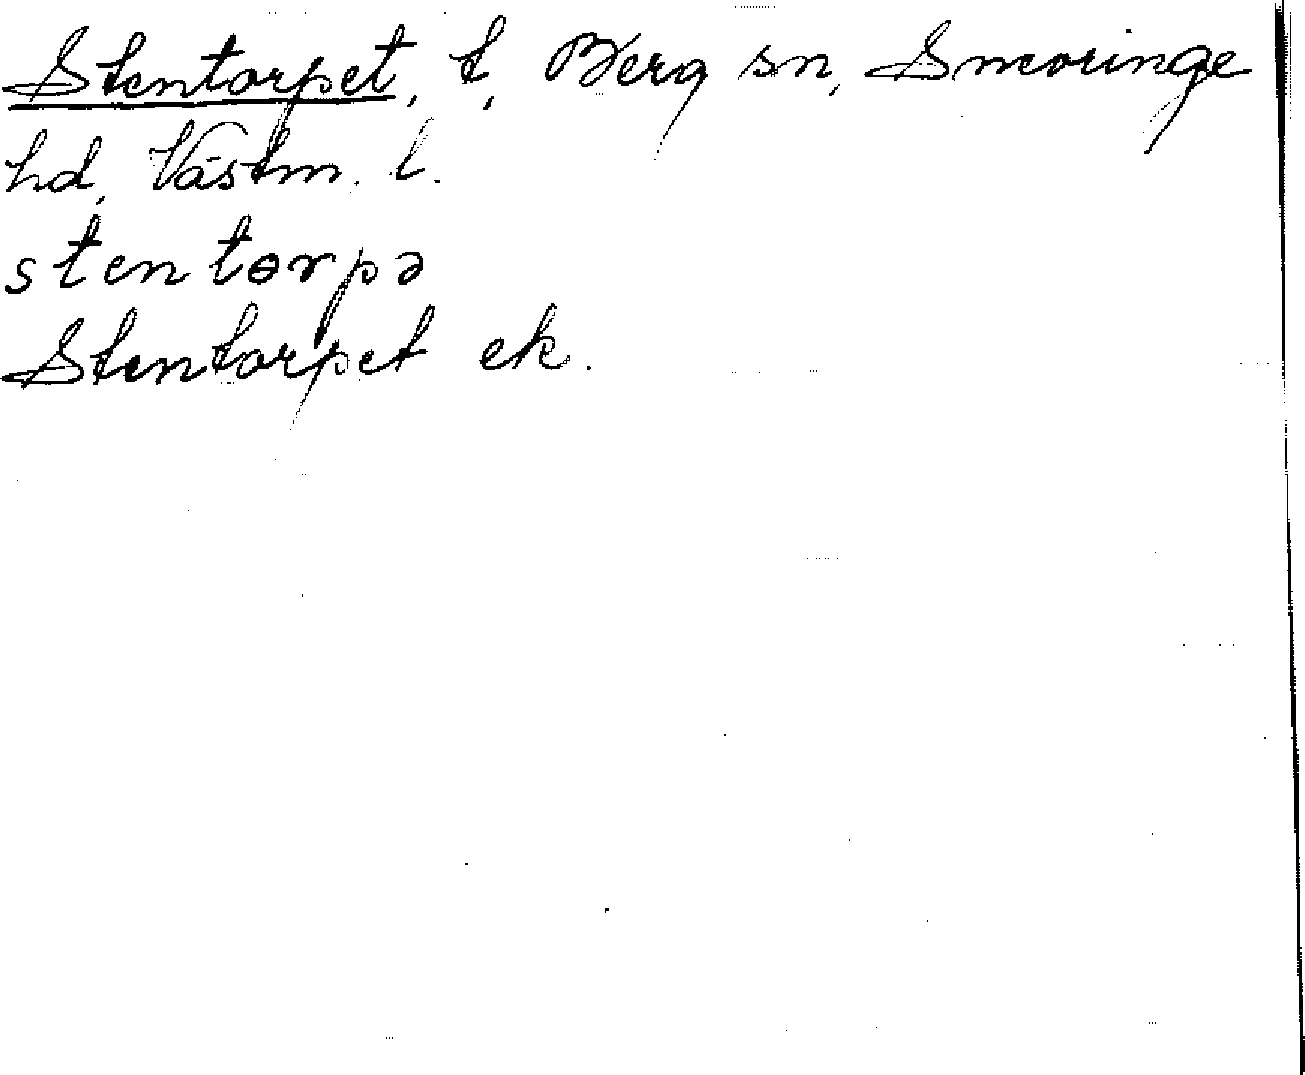 Stentorpet, t, Berg sn, Snevringe
hd, Västm. l.
stentɵrpə
Stentorpet ek.